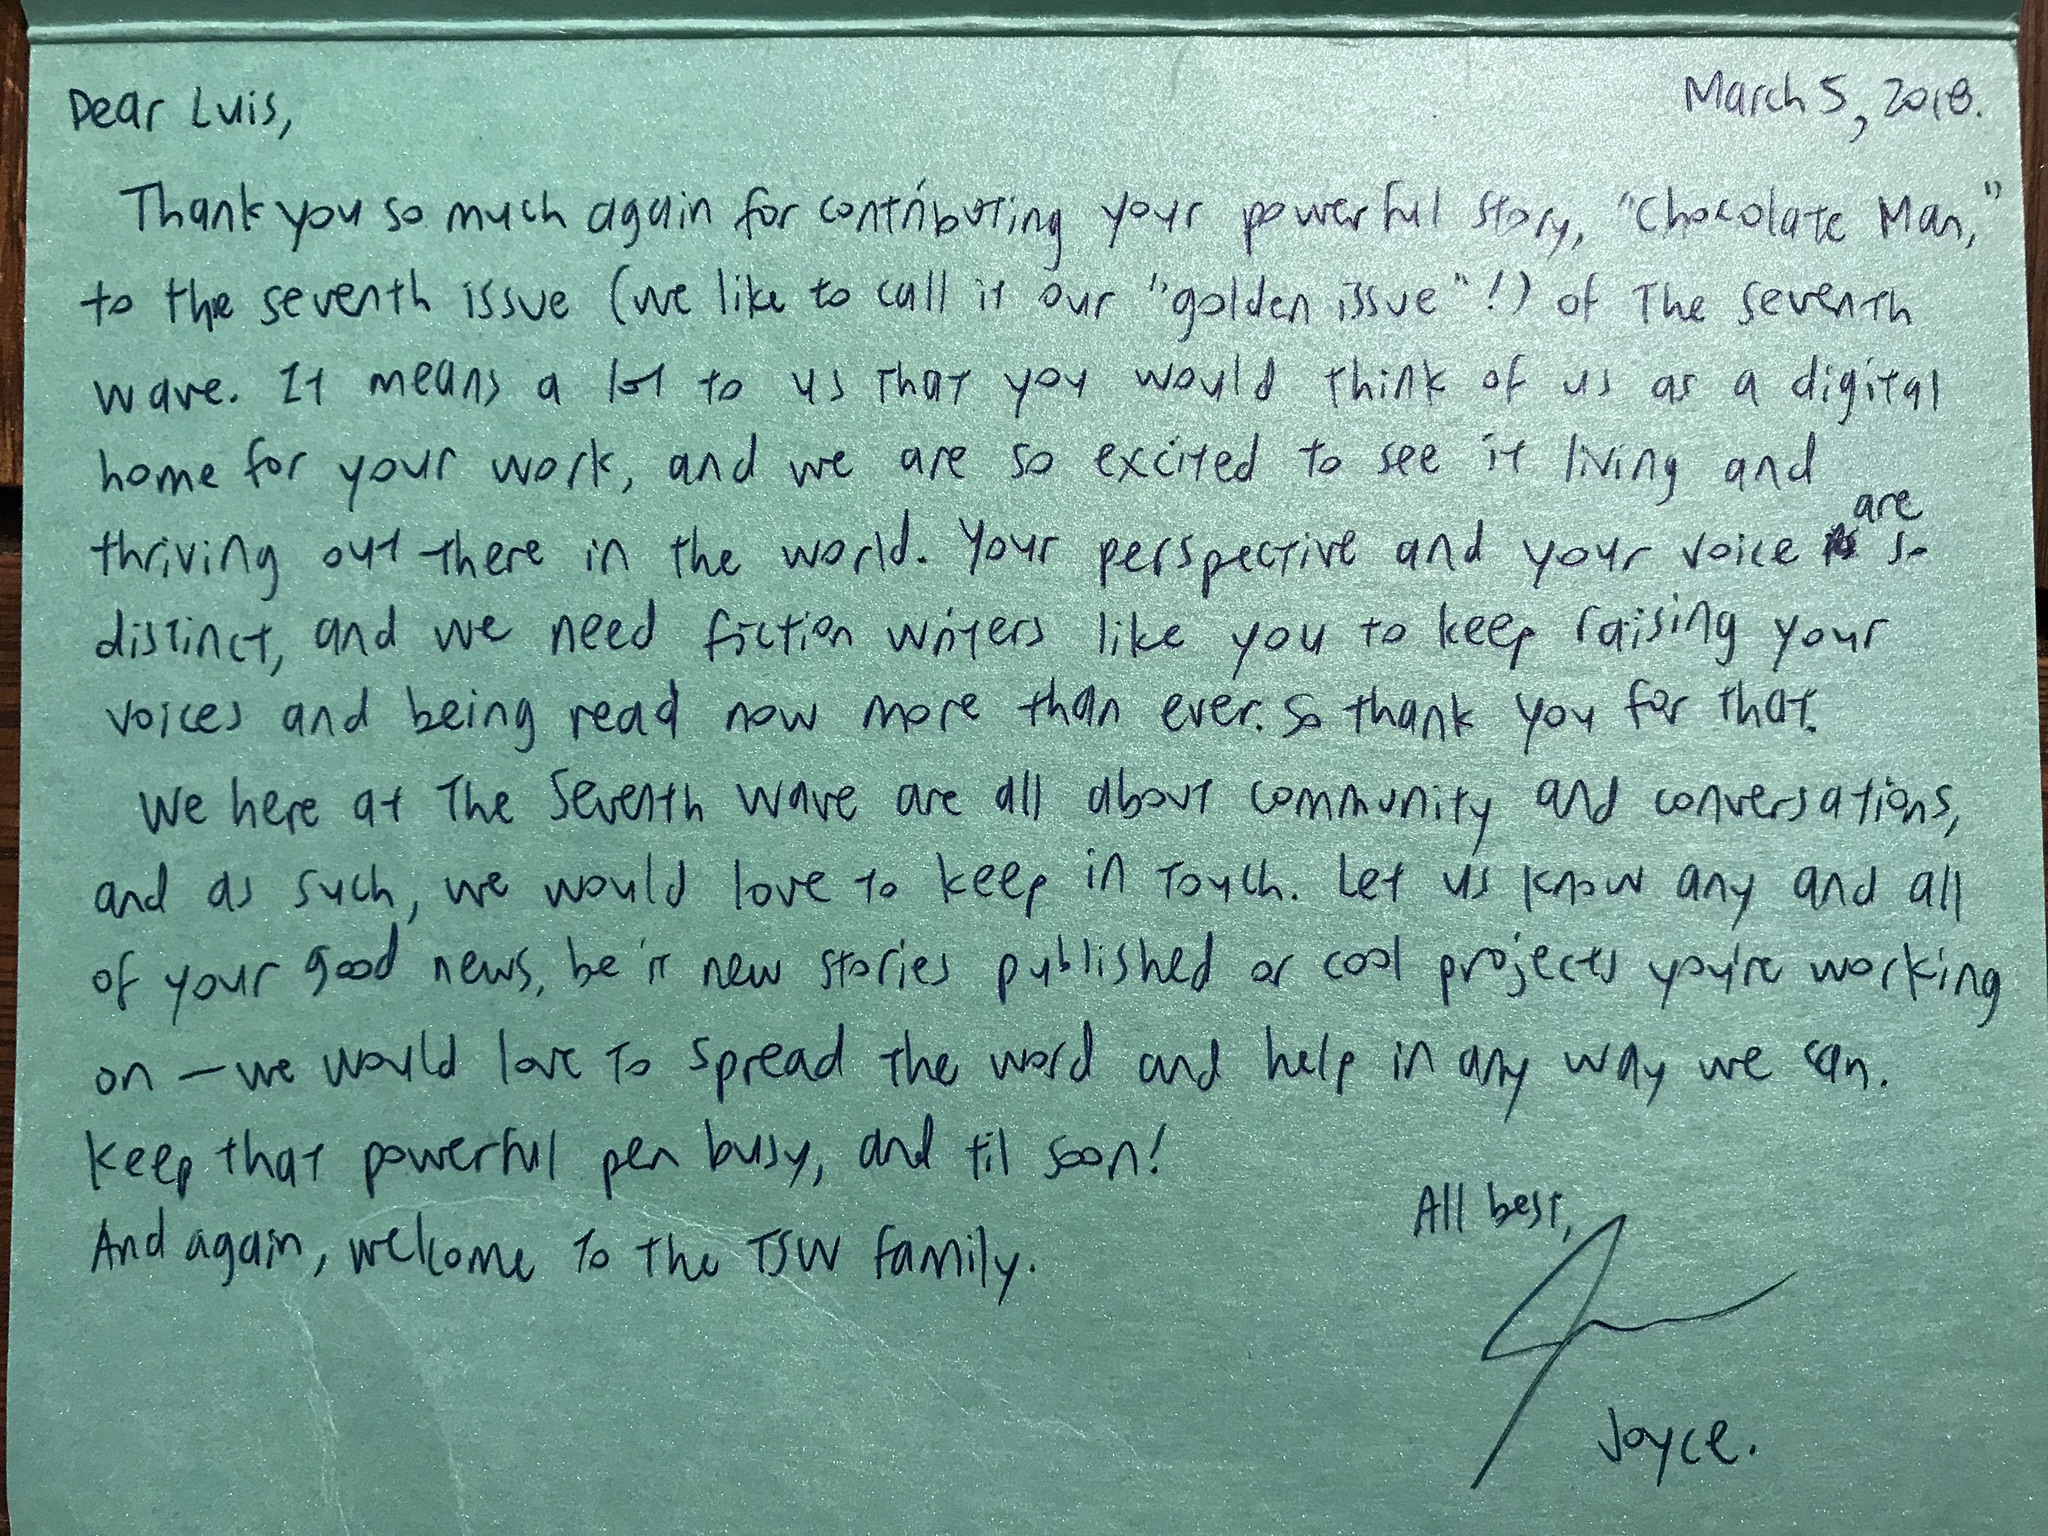 Dear Luis,
March 5, 2018.
Thank you so much again for contributing your powerful story, "Chocolate Man,"
to the seventh issue (we like to call it our "golden issue"!) of The Seventh
Wave. It means a lot to us that you would think of us as a digital
home for your work, and we are so excited to see it living and
thriving out there in the world. Your perspective and your voice are so
distinct, and we need fiction writers like you to keep raising your
voices and being read now more than ever. So thank you for that.
We here at The Seventh Wave are all about community and conversations,
and as such, we would love to keep in touch. Let us know any and all
of your good news, be it new stories published or cool projects you're working
on — we would love to spread the word and help in any way we can.
Keep that powerful pen busy, and til soon!
And again, welcome to the TSW family.
All best,
Joyce.